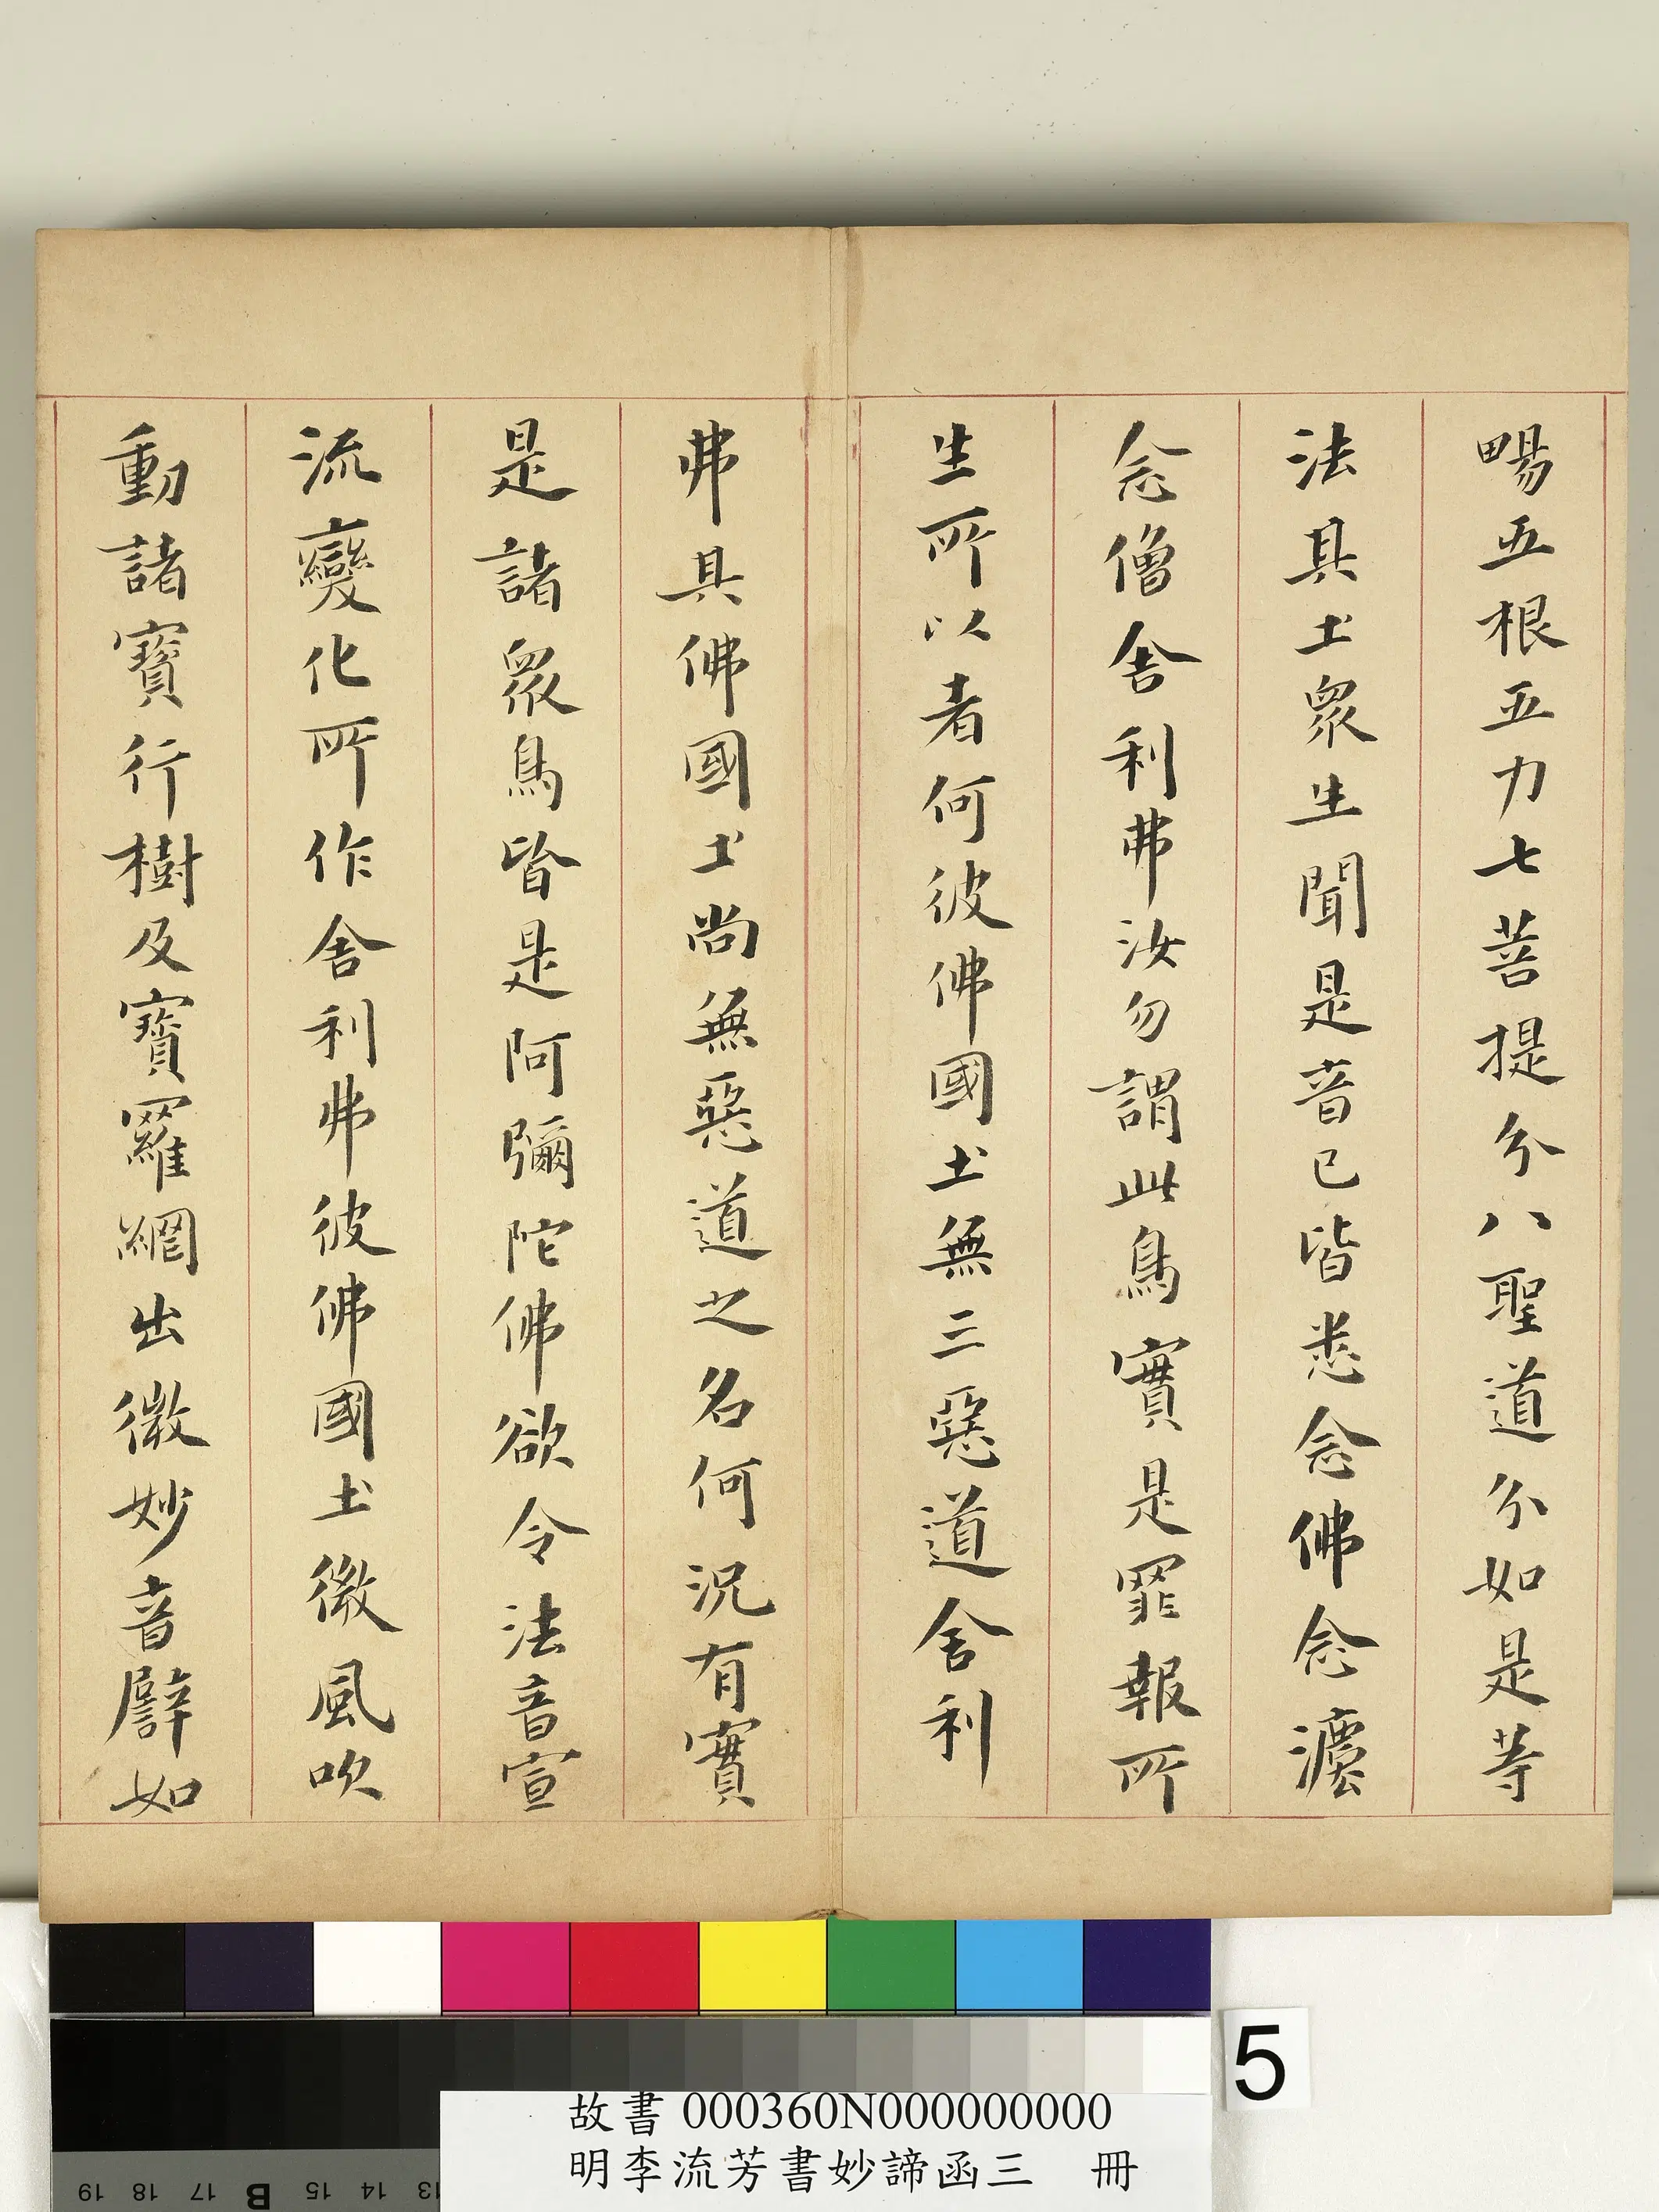 暢五根五力七菩提分八聖道分如是等
法其土眾生聞是音已皆悉念佛念灋
念僧舍利弗汝勿謂此鳥實是罪報所
生所以者何彼佛國土無三惡道舍利
弗其佛國土尚無惡道之名何況有實
是諸眾鳥皆是阿彌陀佛欲令法音宣
流變化所作舍利弗彼佛國土微風吹
動諸寶行樹及寶羅網出微妙音譬如
5
故書 000360N000000000
明李流芳書妙諦函三 冊
19 18 17 B 15 14 13